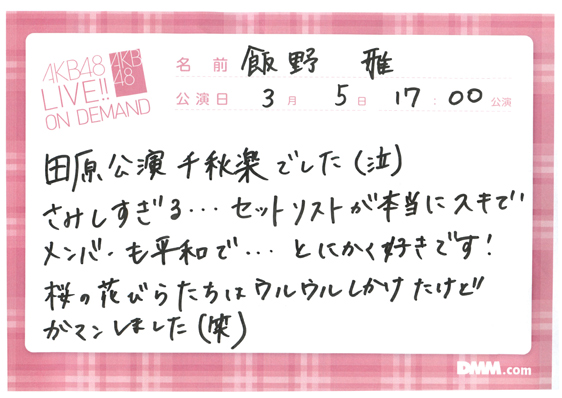 AKB48
LIVE!!
ON DEMAND
AKB
48
名前 飯野 雅
公演日 3月 5日 17:00公演
田原公演千秋楽でした(泣)
さみしすぎる…セットリストが本当にスキで
メンバーも平和で…とにかく好きです!
桜の花びらたちはウルウルしかけたけど
ガマンしました(笑)
DMM.com